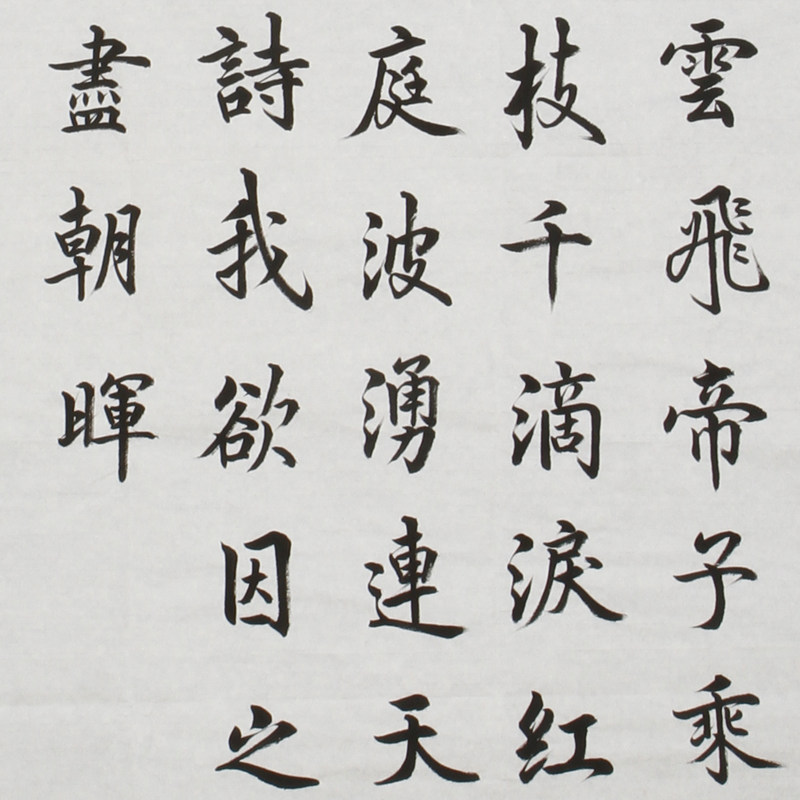 雲飛帝子乘
枝千滴淚紅
庭波湧連天
詩我欲因之
盡朝暉